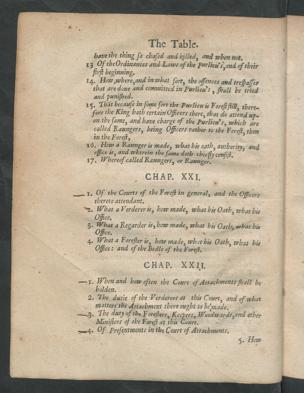 The Table.
have the thing so chased and killed, and when not.
13 Of the Ordinances and Lawe of the Purlieu's, and of their
first beginning.
14. How, where, and in what sort, the offences and trespasses
that are done and committed in Purlieu's, shall be tried
and punished.
15. That because in some sort the Purlieu is Forest still, there-
fore the King hath certain Officers there, that do attend upon
on the same, and have charge of the Purlieu's, which are
called Raungers, being Officers rather to the Forest, then
in the Forest,
16. How a Raunger is made, what his oath, authority, and
office is, and wherein the same doth chiefly consist.
17. Whereof called Raungers, or Raunger.
CHAP. XXI.
1. Of the Courts of the Forest in general, and the Officers
thereto attendant.
2. What a Verderer is, how made, what his Oath, what his
Office.
3. What a Regarder is, how made, what his Oath, what his
Office.
4. What a Forester is, how made, what his Oath, what his
Office: and of the Bedle of the Forest.
CHAP. XXII.
1. When and how often the Court of Attachments shall be
holden.
2. The dutie of the Verderor at this Court, and of what
matters the Attachment there ought to be made.
3. The duty of the Foresters, Keepers, Woodwards, and other
Ministers of the Forest at this Court.
4. Of Presentments in the Court of Attachments.
5. How